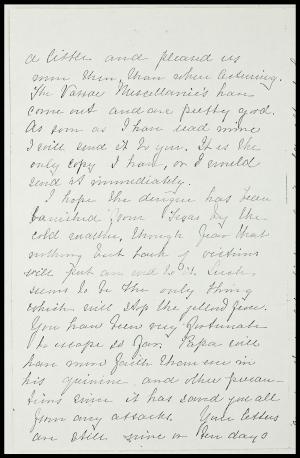 a little and pleased us
more then, than when lecturing.
The Vassar Miscellanies have
come out and are pretty good.
As soon as I have read mine
I will send it to you. It is the
only copy I have, or I would
send it immediately.
I hope the dengue has been
banished from Texas by the
cold weather, though fear that
nothing but lack of victims
will put an end to it. Such
seems to be the only thing
which will stop the yellow fever.
You have been very fortunate
to escape so far. Papa will
have more faith than ever in
his quinine and other precau-
tions since it has saved you all
from any attacks. Your letters
are still nine or ten days